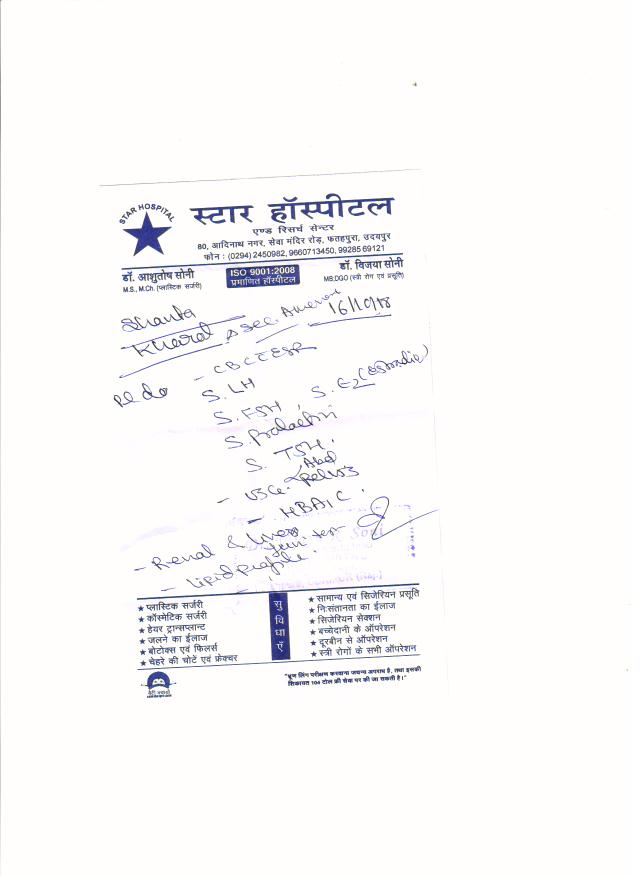 STAR HOSPITAL
स्टार हॉस्पीटल
एण्ड रिसर्च सेन्टर
80, आदिनाथ नगर, सेवा मंदिर रोड़, फतहपुरा, उदयपुर
फोन : (0294) 2450982, 9660713450, 99285 69121
डॉ. आशुतोष सोनी
M.S., M.Ch. (प्लास्टिक सर्जरी)
ISO 9001:2008
प्रमाणित हॉस्पीटल
डॉ. विजया सोनी
MB;DGO (स्त्री रोग एवं प्रसूति)
Shanta
Kharol
Sec. Amenor
16/10/18
Pl do
- CBC ESR
S. LH
S. FSH, S. E2
S. Prolactin
S. TSH,
- USG. Abd
Pelvis
- HBA1C.
- Renal & Liver
fun. test
- Lipid profile.
सुविधाएँ
★ प्लास्टिक सर्जरी
★ कॉस्मेटिक सर्जरी
★ हेयर ट्रान्सप्लान्ट
★ जलने का ईलाज
★ बोटोक्स एवं फिलर्स
★ चेहरे की चोटें एवं फ्रेक्चर
★ सामान्य एवं सिजेरियन प्रसूति
★ निःसंतानता का ईलाज
★ सिजेरियन सेक्शन
★ बच्चेदानी के ऑपरेशन
★ दूरबीन से ऑपरेशन
★ स्त्री रोगों के सभी ऑपरेशन
बेटी बचाओ
"भ्रूण लिंग परीक्षण करवाना जघन्य अपराध है, तथा इसकी
शिकायत 104 टोल फ्री सेवा पर की जा सकती है।"